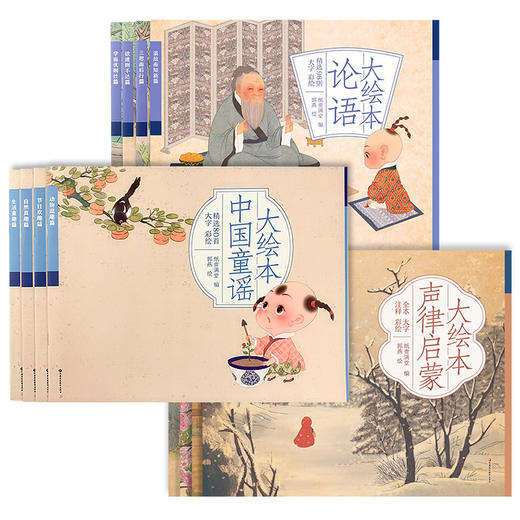 学而优则仕篇
欲速则不达篇
三思而后行篇
温故而知新篇
大绘本
论语
精选98则
大字 彩绘
纸贵满堂 编
郭燕 绘
生活童趣篇
自然真趣篇
节日欢趣篇
动物逗趣篇
大绘本
中国童谣
精选80首
大字 彩绘
纸贵满堂 编
郭燕 绘
大绘本
声律启蒙
全本 大字
注释 彩绘
纸贵满堂 编
郭燕 绘